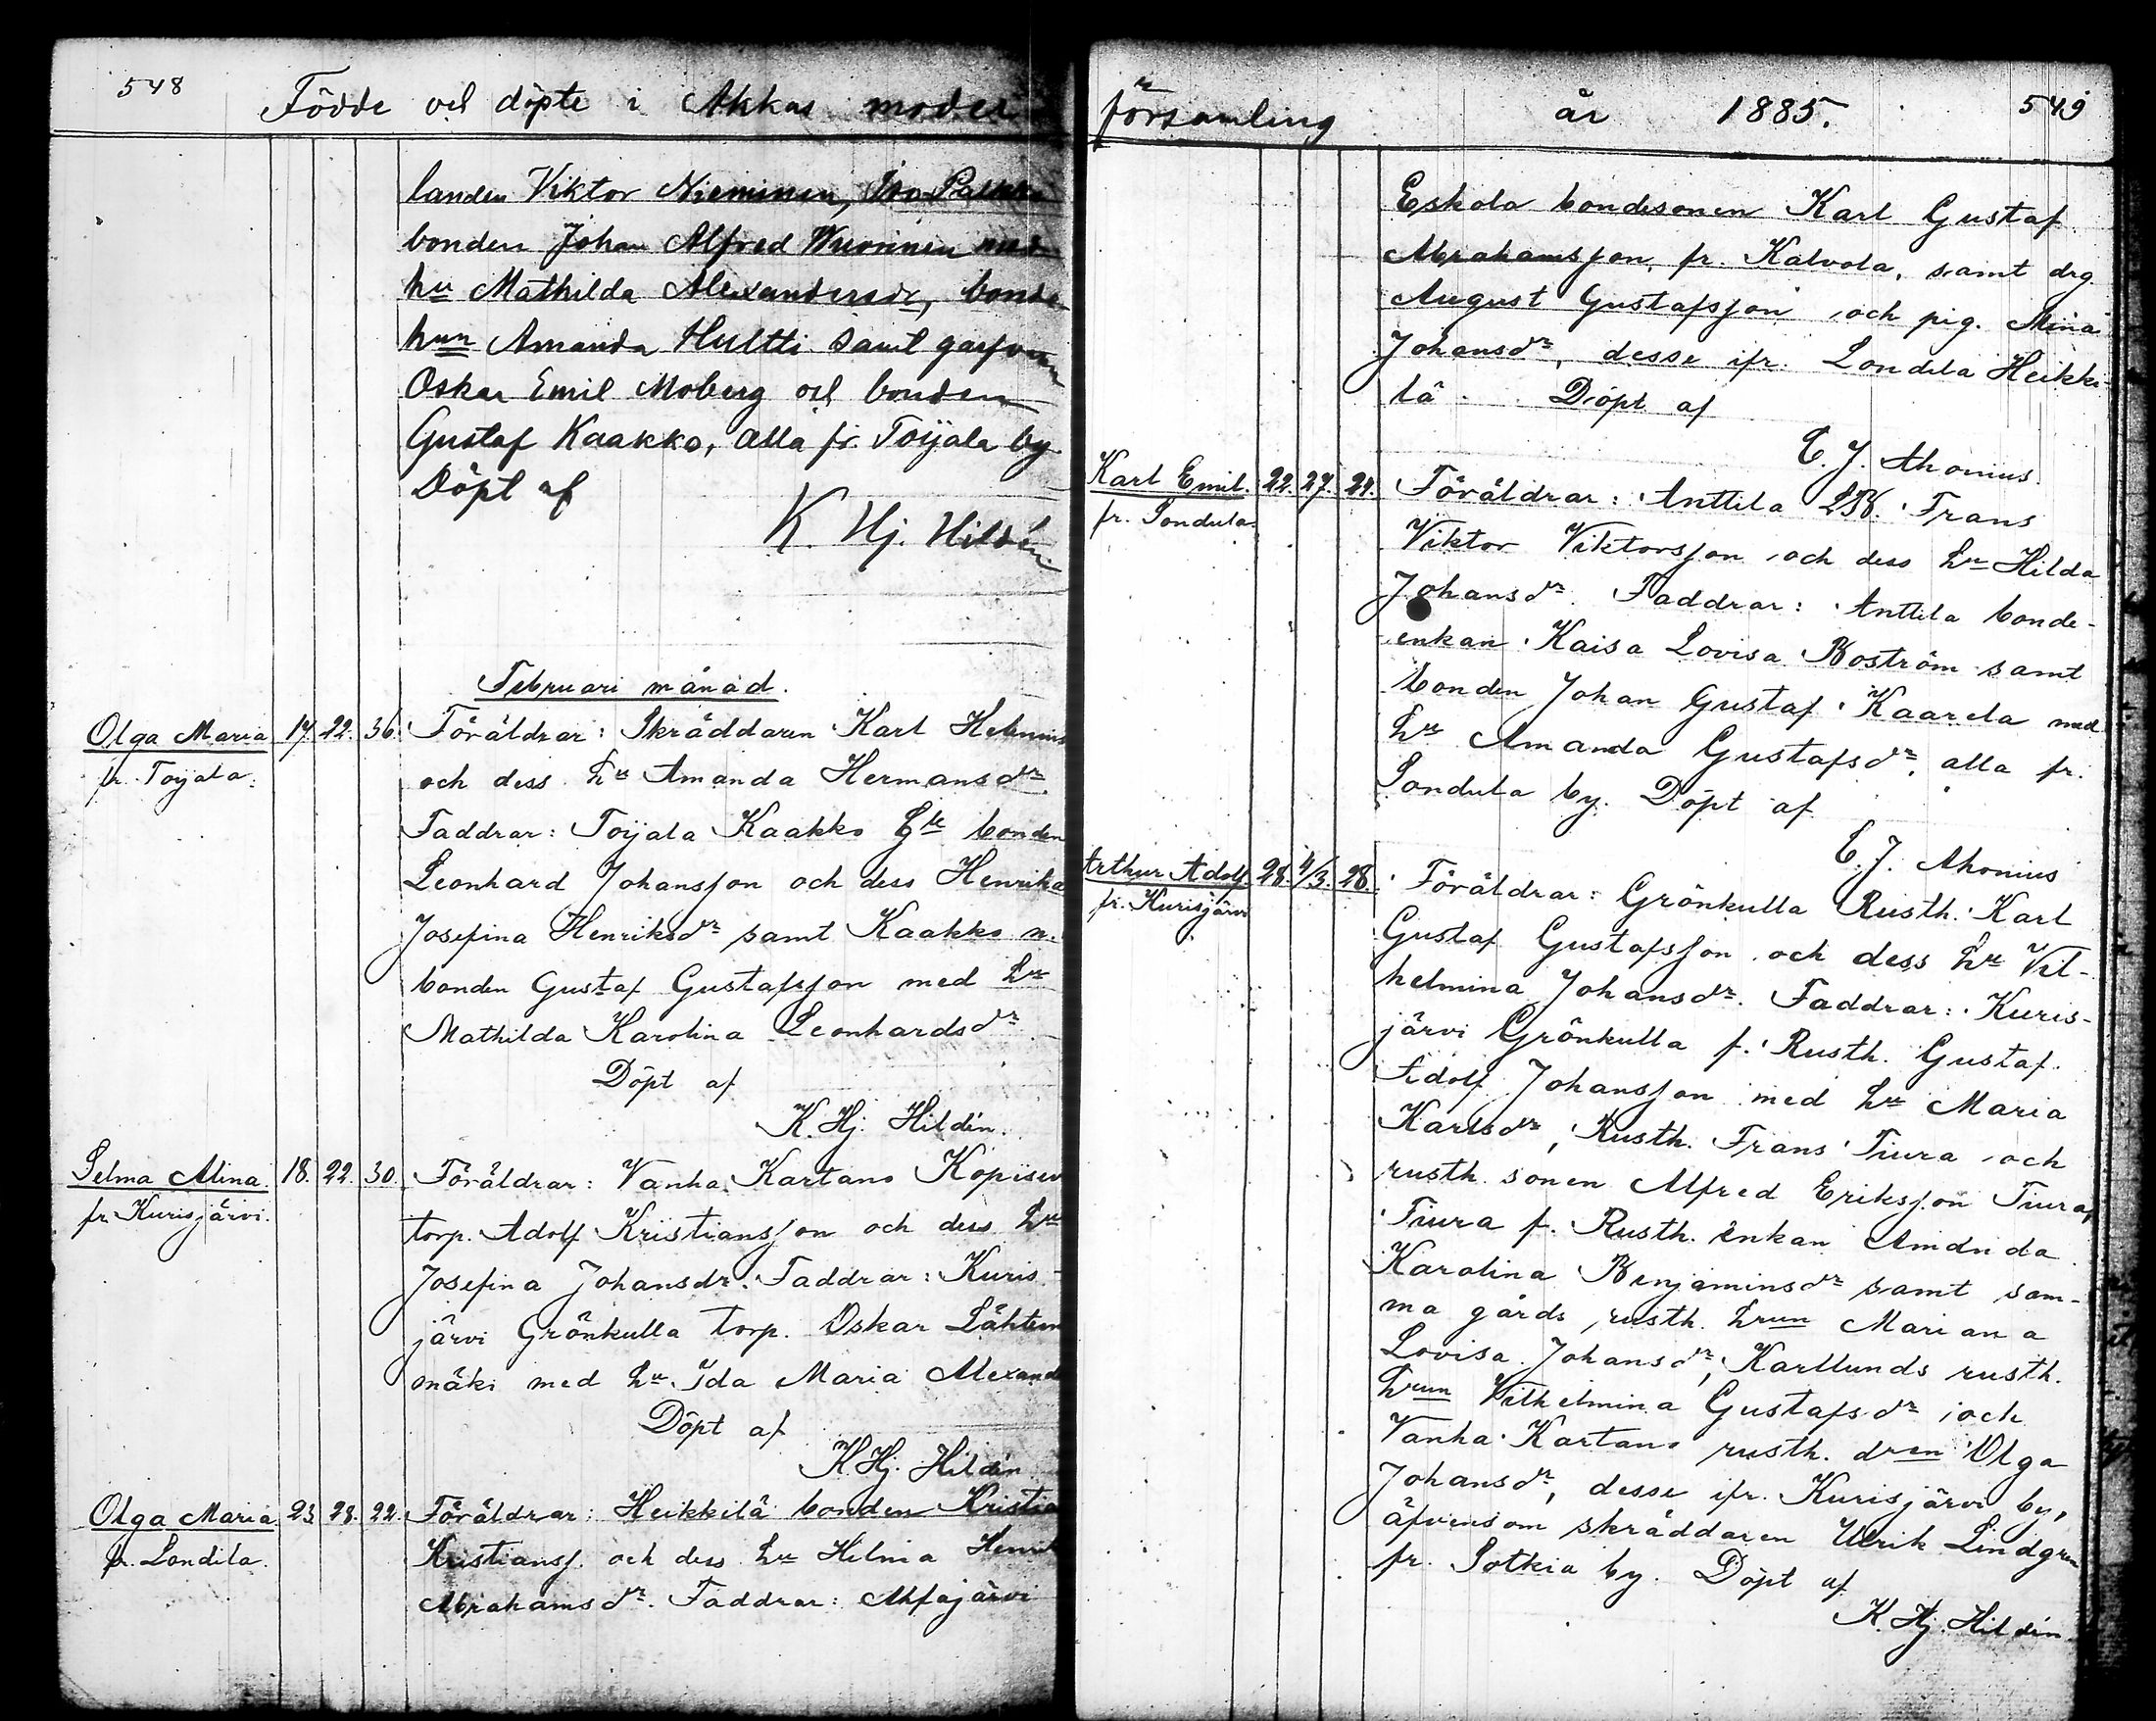 548
Födde och döpte i Akkas moder
landen Viktor Nieminen, Iso Pakka
bonden Johan Alfred Wuorinen med
hu Mathilda Alexandersdr, bonde
hun Amanda Hultti samt garfvaren
Oskar Emil Moberg och bonden
Gustaf Kaakko, alla fr. Toijala by.
Döpt af
K. Hj. Hildén
Februari månad.
Olga Maria 17. 22. 36. Föräldrar: Skräddaren Karl Helenius
fr. Toijala. och dess hu Amanda Hermansdr.
Faddrar: Toijala Kaakko bonden
Leonhard Johansson och dess Henrika
Josefina Henriksdr samt Kaakko n.
bonden Gustaf Gustafsson med hu
Mathilda Karolina Leonhardsdr
Döpt af
K. Hj. Hildén.
Selma Alina. 18. 22. 30. Föräldrar: Vanha Kartano Kopisev
fr. Kurisjärvi. torp. Adolf Kristiansson och dess hu
Josefina Johansdr. Faddrar: Kuris-
järvi Grönkulla torp. Oskar Lähteen
mäki med hu Ida Maria Alexand
Döpt af
K. Hj. Hildén
Olga Maria 23. 28. 22. Föräldrar: Heikkilä bonden Kristian
fr. Londila. Kristianss. och dess hu Helmia Henrik
Abrahamsdr. Faddrar: Ahlajärvi
församling år 1885. 549
Eskola bondesonen Karl Gustaf
Abrahamsson, fr. Kalvola, samt drg.
August Gustafsson och pig. Mina
Johansdr, desse ifr. Londila Heikki-
lä. Döpt af
C. J. Ahonius.
Karl Emil. 22. 27. 24. Föräldrar: Anttila Frans
fr. Sondula. Viktor Viktorsson och dess hu Hilda
Johansdr. Faddrar: Anttila bonde-
enkan Kaisa Lovisa Boström samt
bonden Johan Gustaf Kaarela med
hu Amanda Gustafsdr, alla fr.
Sondula by. Döpt af
C. J. Ahonius
Arthur Adolf 28. 4/3. 28. Föräldrar: Grönkulla Rusth. Karl
fr. Kurisjärvi Gustaf Gustafsson och dess hu Vil-
helmina Johansdr. Faddrar: Kuris-
järvi Grönkulla f. Rusth. Gustaf
Adolf Johansson med hu Maria
Karlsdr, Rusth. Frans Tiura och
rusth. sonen Alfred Eriksson Tiura,
Tiura f. Rusth. enkan Amanda
Karolina Benjaminsdr samt sam-
ma gårds rusth. hrun Mariana
Lovisa Johansdr, Karllunds rusth.
hrun Vilhelmina Gustafsdr och
Vanha Kartano rusth. dren Olga
Johansdr, desse ifr. Kurisjärvi by,
äfvensom skräddaren Ulrik Lindgren
fr. Sotkia by. Döpt af
K. Hj. Hildén